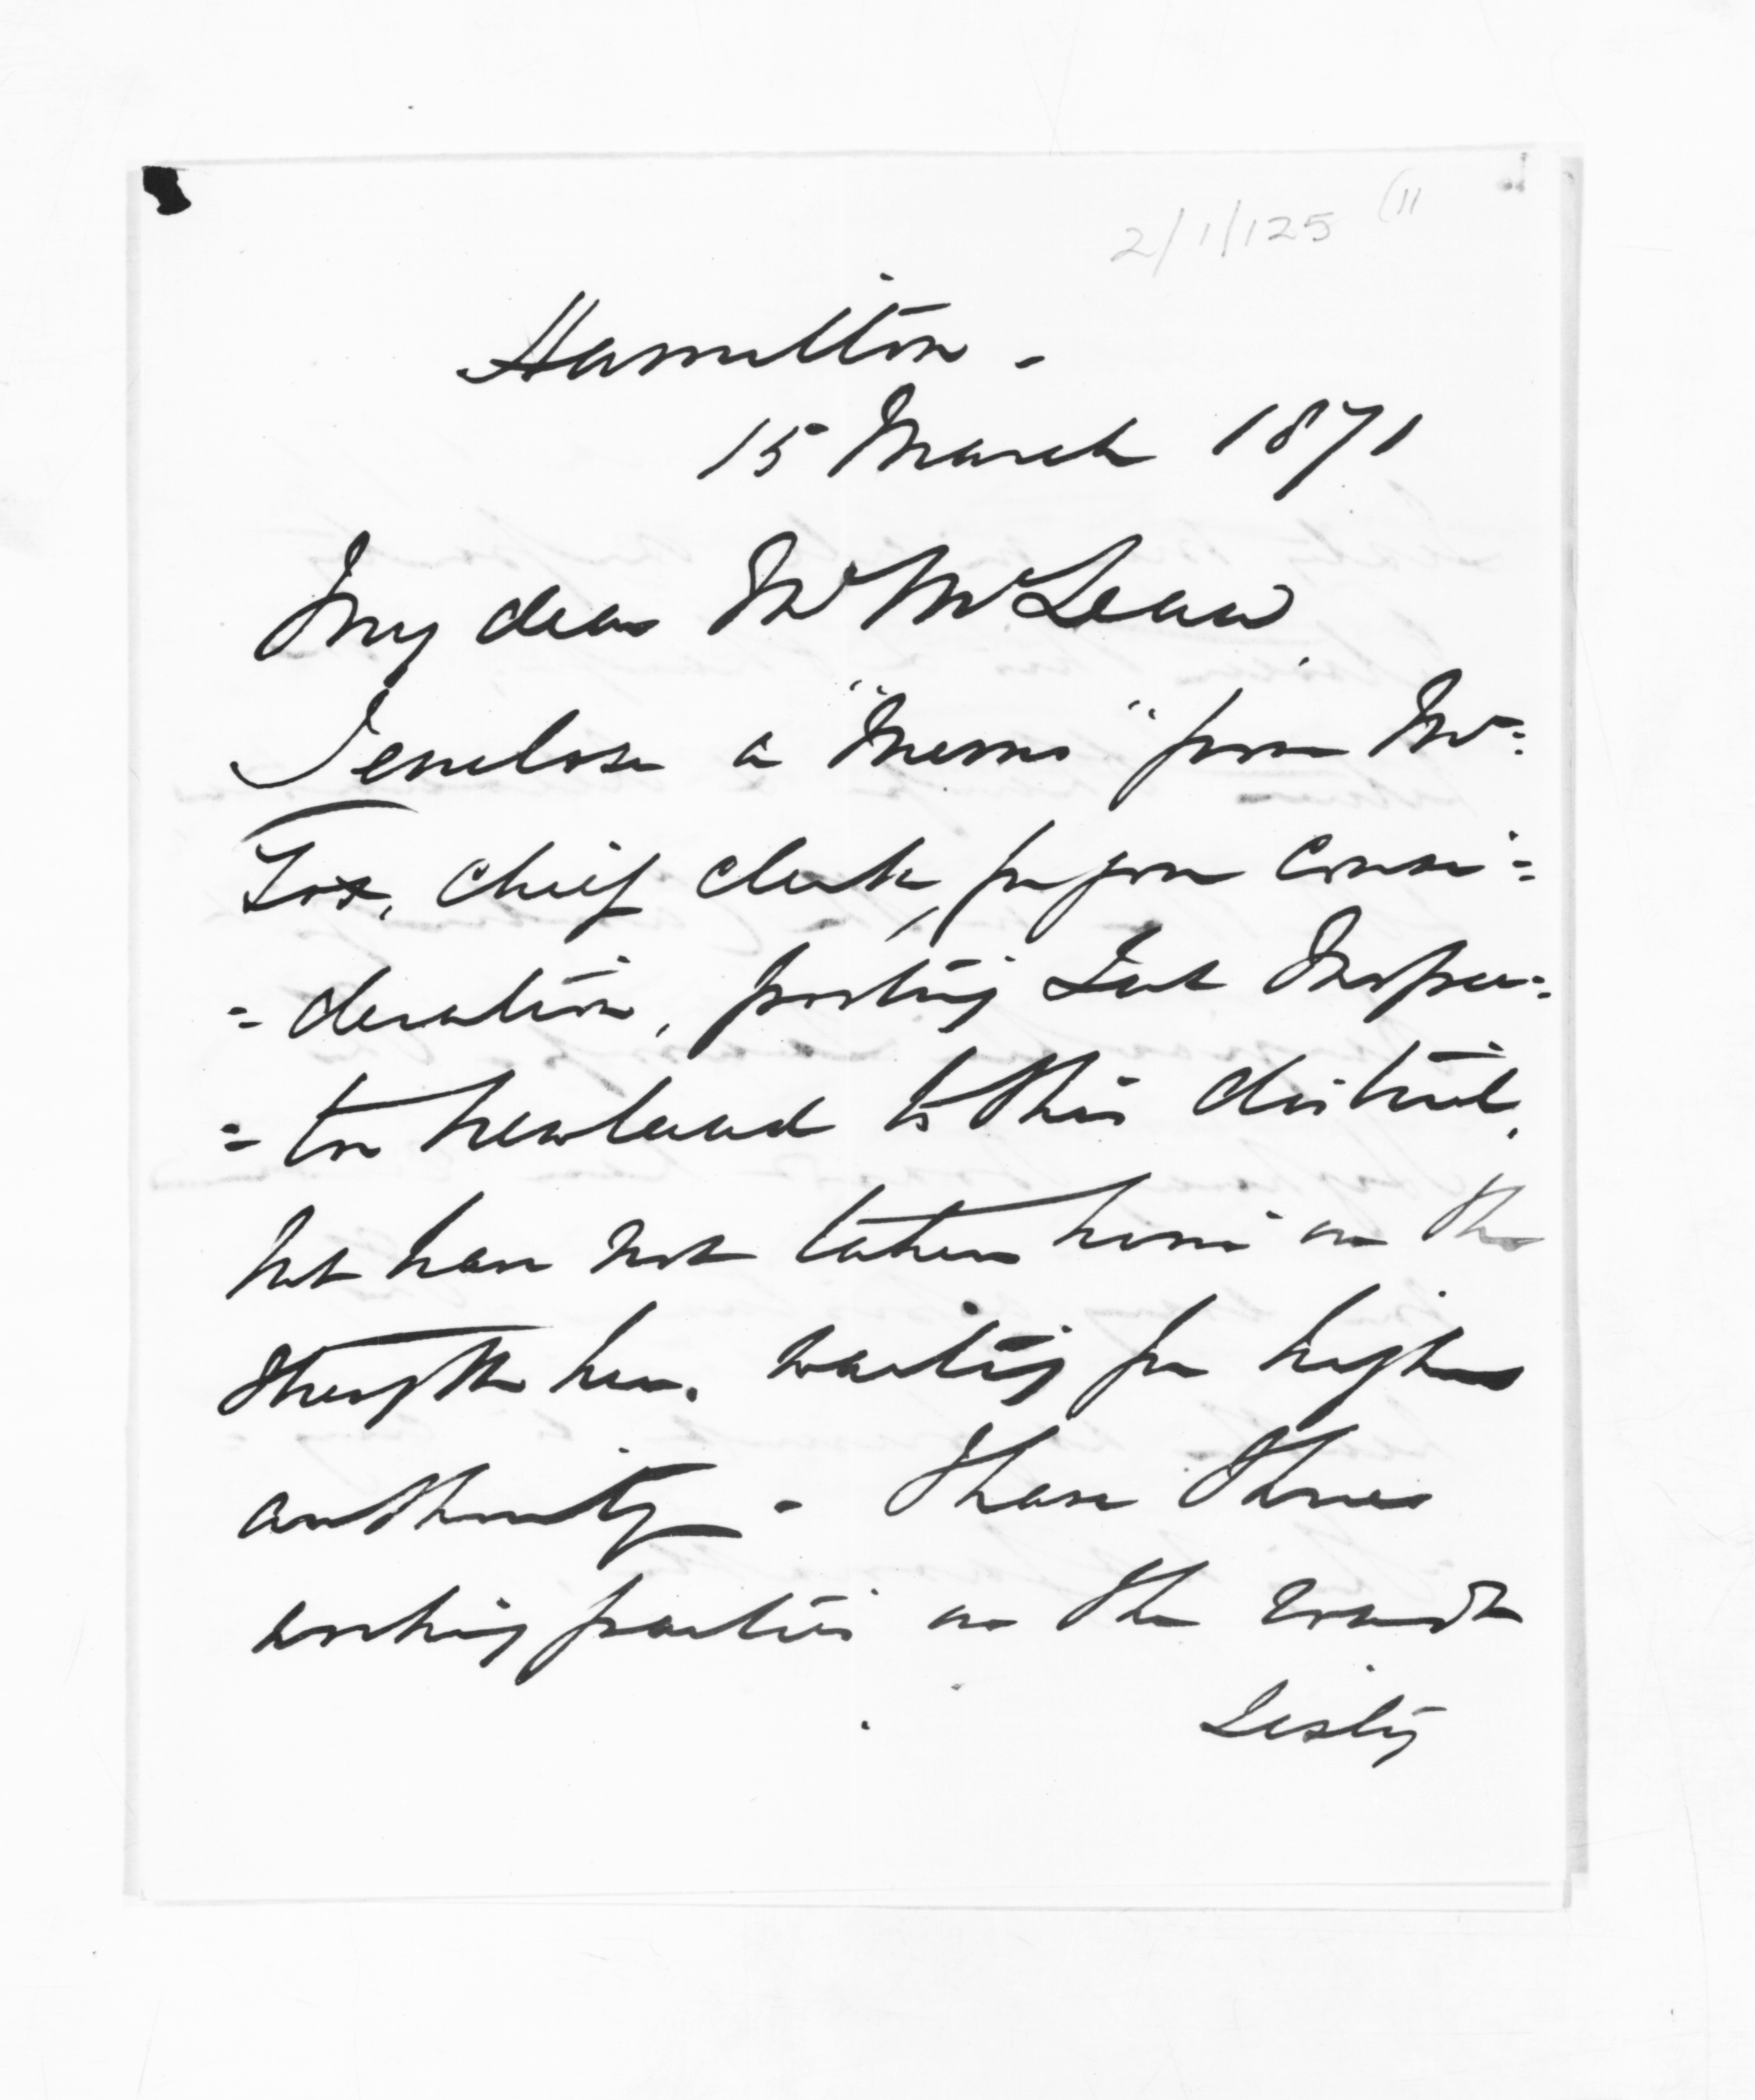 2/1/125 (11
Hamilton -
15 March 1871
My dear Mr McLean,
I enclose a "Memo" from Mr.
Fox, chief clerk, for your consi=
=deration, posting Sub Inspec=
=tor Newland to this district,
but have not taken him on the
strength here, waiting for higher
authority - I have three
working parties on the roads